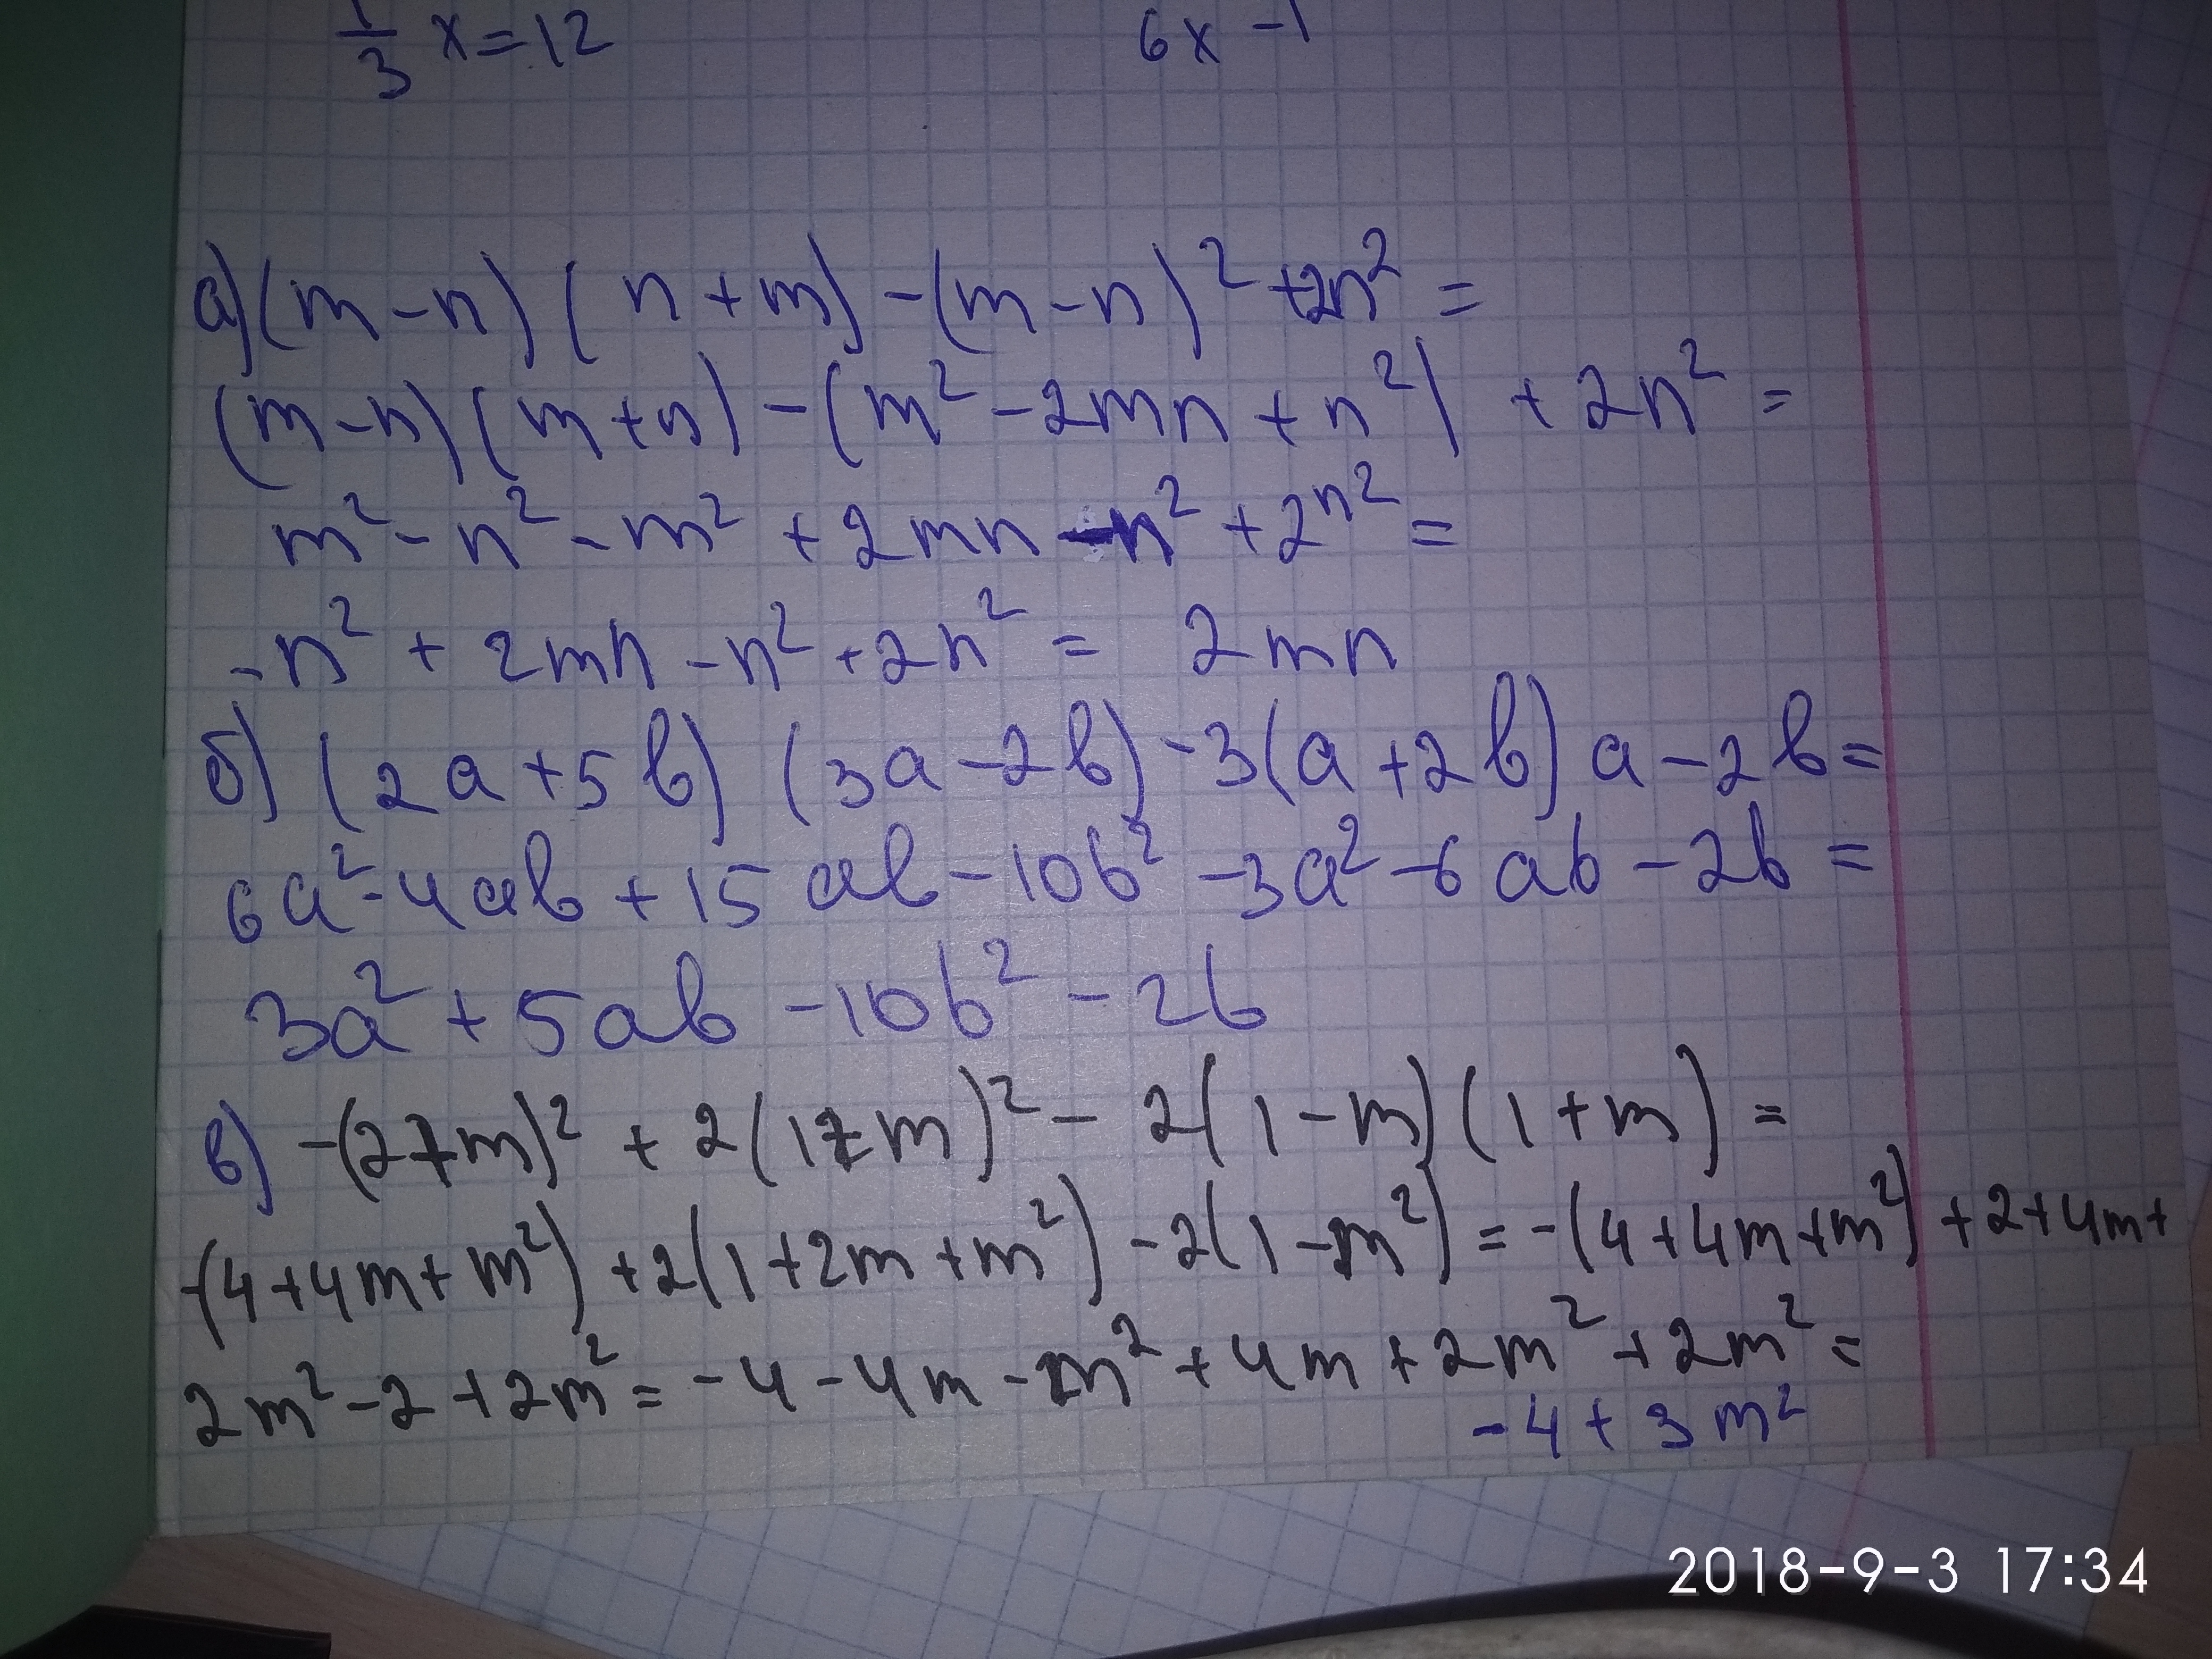 1/3 x = 12
6x - 1
а) (m - n) (n + m) - (m - n)² + 2n² =
(m - n) (m + n) - (m² - 2mn + n²) + 2n² =
m² - n² - m² + 2mn - n² + 2n² =
- n² + 2mn - n² + 2n² = 2mn
б) (2a + 5b) (3a - 2b) - 3(a + 2b) a - 2b =
6a² - 4ab + 15ab - 10b² - 3a² - 6ab - 2b =
3a² + 5ab - 10b² - 2b
в) -(2+m)² + 2(1+m)² - 2(1 - m) (1 + m) =
-(4 + 4m + m²) + 2(1 + 2m + m²) - 2(1 - m²) = -(4 + 4m + m²) + 2 + 4m +
2m² - 2 + 2m² = - 4 - 4m - m² + 4m + 2m² + 2m² =
- 4 + 3m²
2018-9-3 17:34